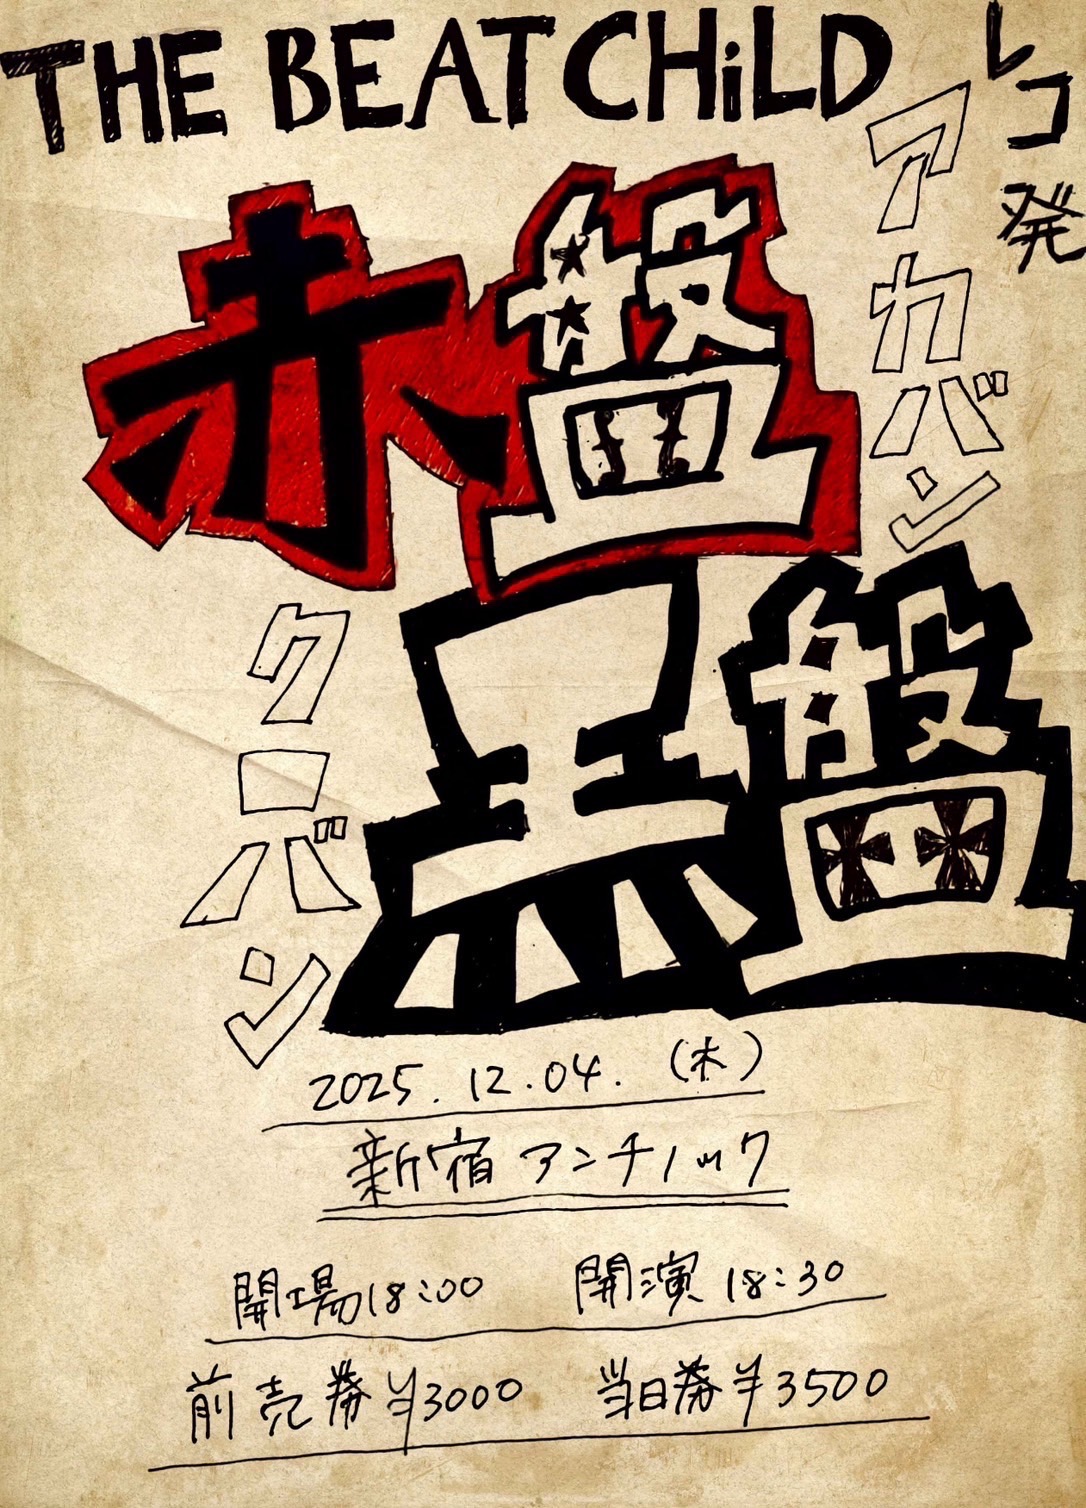 THE BEATCHiLD
レコ発
赤盤
アカバン
黒盤
クーバン
2025.12.04.(木)
新宿アンチノック
開場18:00 開演18:30
前売券¥3000 当日券¥3500